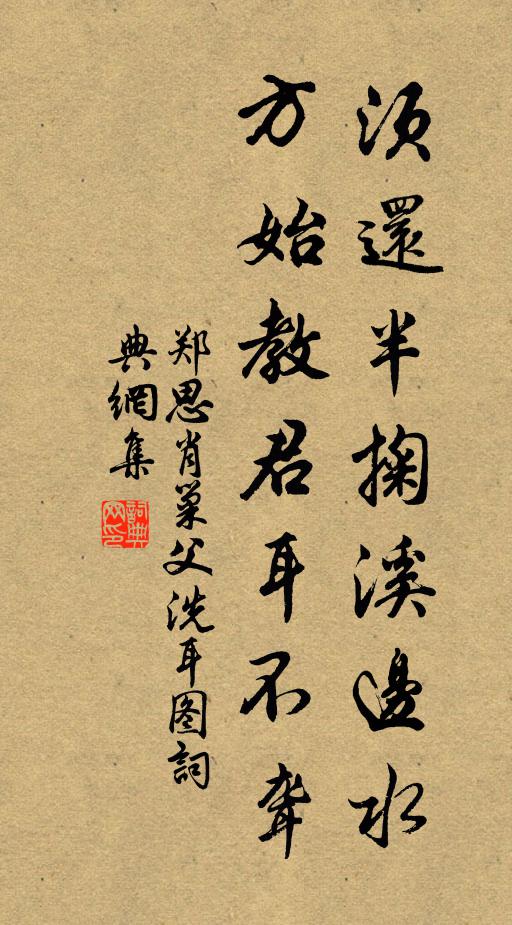 须還半掬溪邊水
方始教君耳不聋
郑思肖巢父洗耳图詞
典網集
詞典
网印